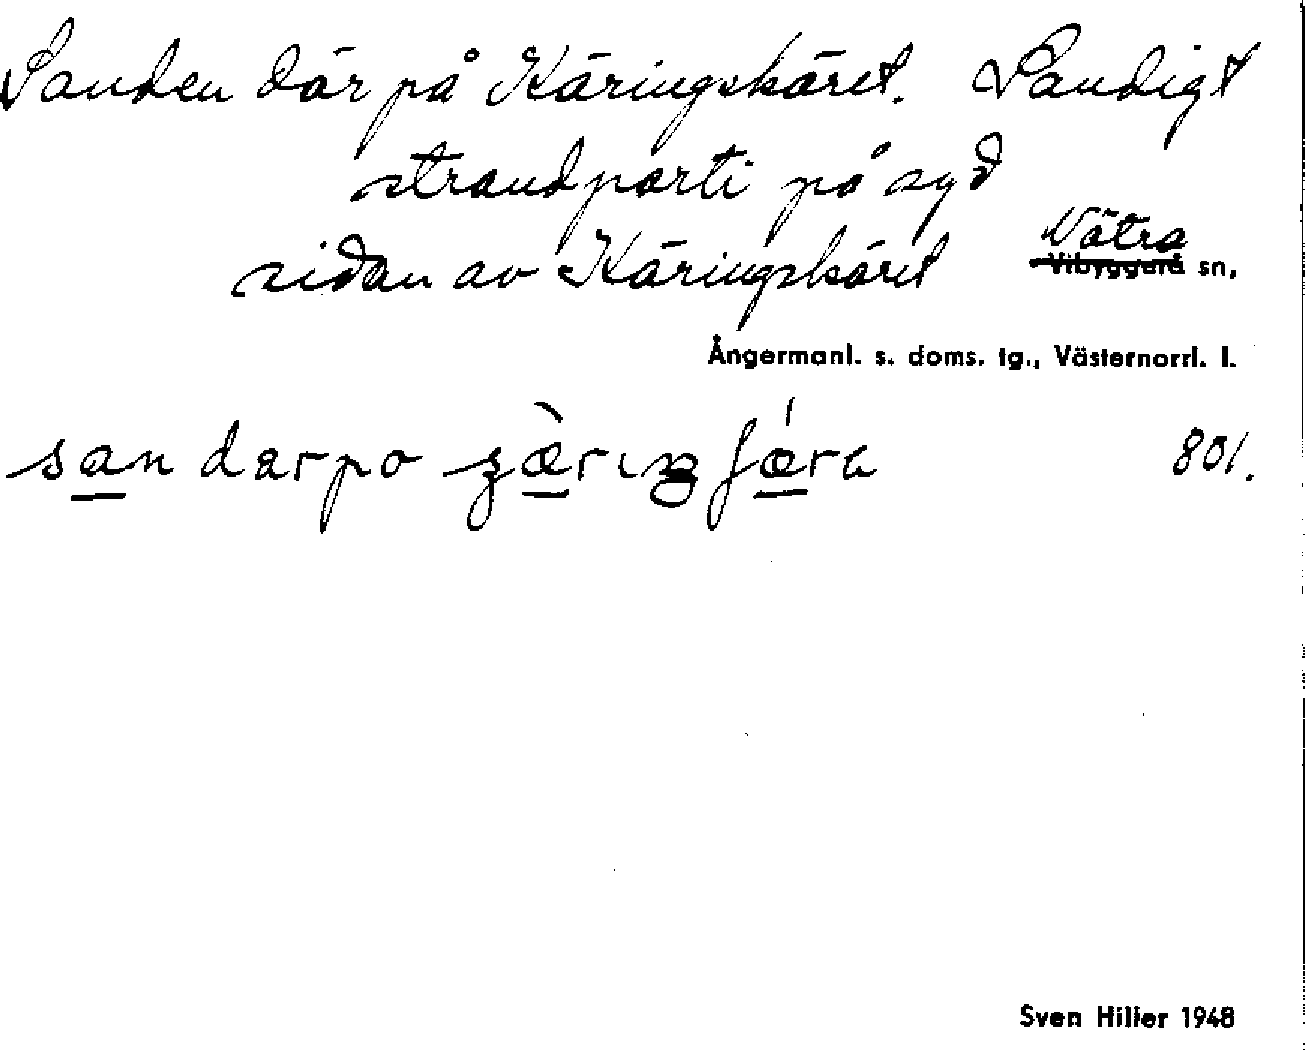 Sanden där på Käringskäret. Sandigt
strandparti på syd
sidan av Käringskäret
Nätra
Vibyggerå sn,
Ångermanl. s. doms. tg., Västernorrl. l.
san darpo
801.
Sven Hiller 1948